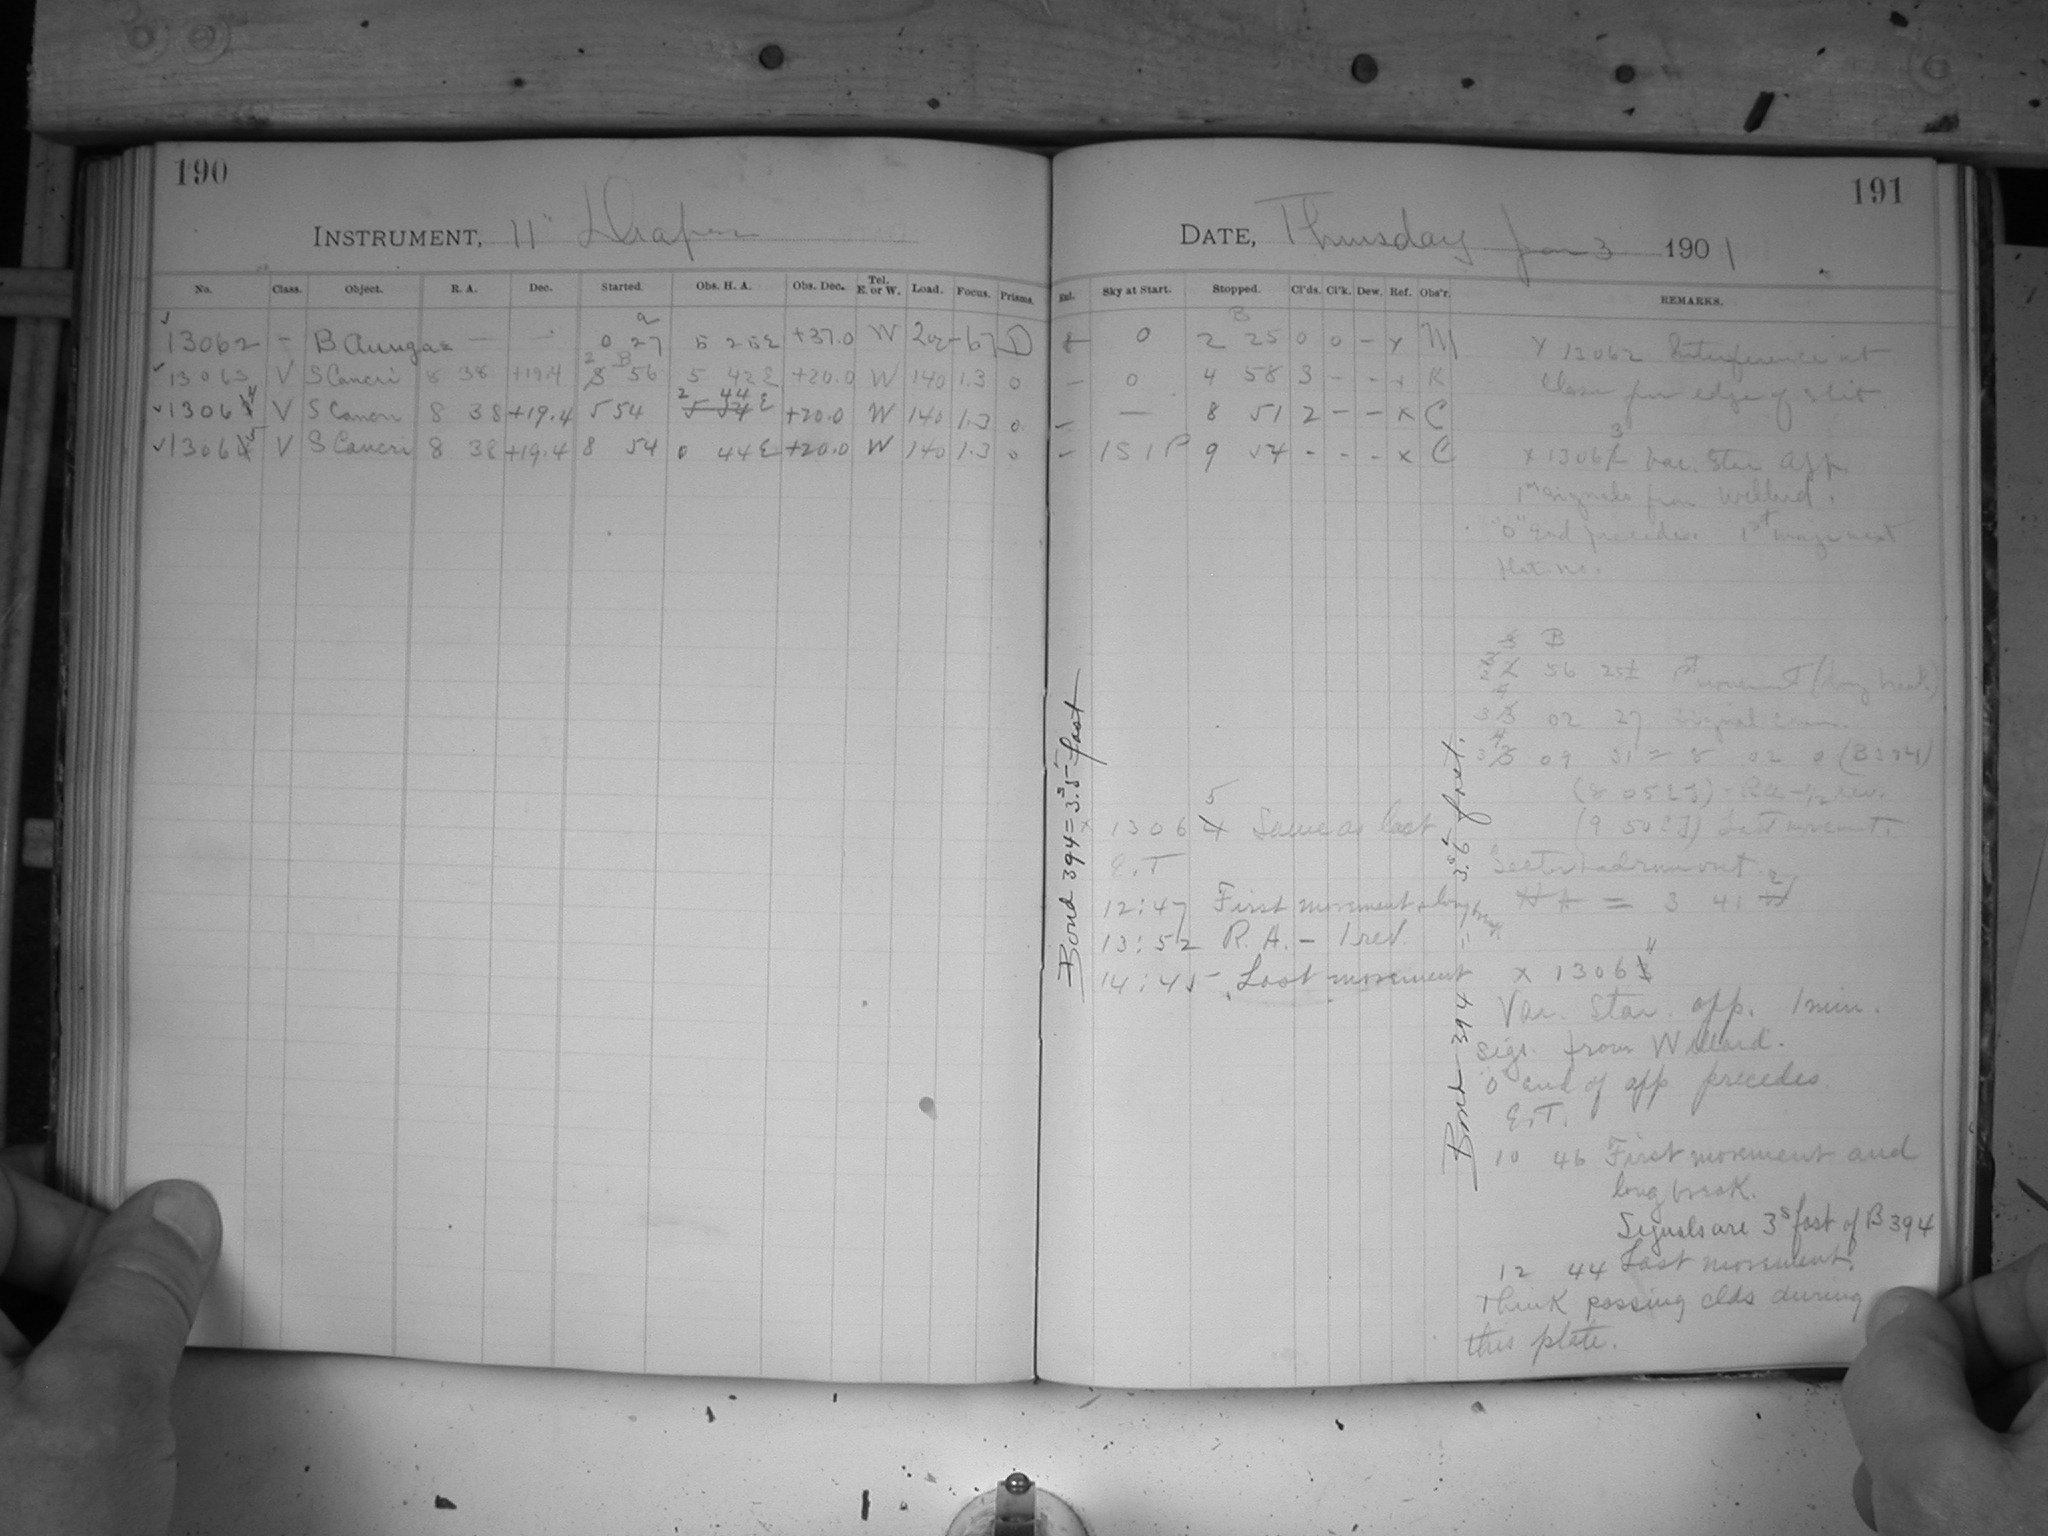 190
INSTRUMENT, 11" Draper
No. Class. Object. R. A. Dec. Started. Obs. H. A. Obs. Dec. Tel. E. or W. Load. Focus. Prisms.
13062 - B Aurigae - - 0 27 +37.0 W D
13063 V S Cancri 8 38 +19.4 2 56 5 42 E +20.0 W 140 1.3 0
13064 V S Cancri 8 38 +19.4 5 54 2 44 E +20.0 W 140 1.3 0
13065 V S Cancri 8 38 +19.4 8 54 0 44 E +20.0 W 140 1.3 0
191
DATE, Thursday Jan 3 1901
Exl. Sky at Start. Stopped. Cl'ds. Cl'k. Dew. Ref. Obs'r. REMARKS.
0 2 25 0 0 - Y M
- 0 4 58 3 - - x K
- - 8 51 2 - - x C
- 1S1P 9 54 - - - x C
Y 13062 Interference at
close from edge of slit
x 13063 Var. Star App.
1m signals from Willard.
"0" End precedes. 1st
Plate no.
B
56 25± 1st movement (long break)
02 27 Signal
09 31 = 8 02 0 (B394)
Last movement.
= 3 41
Bond 394 = 3.s5 fast
x 13065 Same as last
E.T
12:47 First movement & long break
13:52 R. A. - 1 rev.
14:45 Last movement
Bond 394 = 3.s6 fast.
x 13064
Var. Star. app. 1 min.
Sigs. from Willard.
"0" end of app. precedes.
E.T.
10 46 First movement and
long break.
Signals are 3s fast of B 394
12 44 Last movement.
Think passing clds during
this plate.